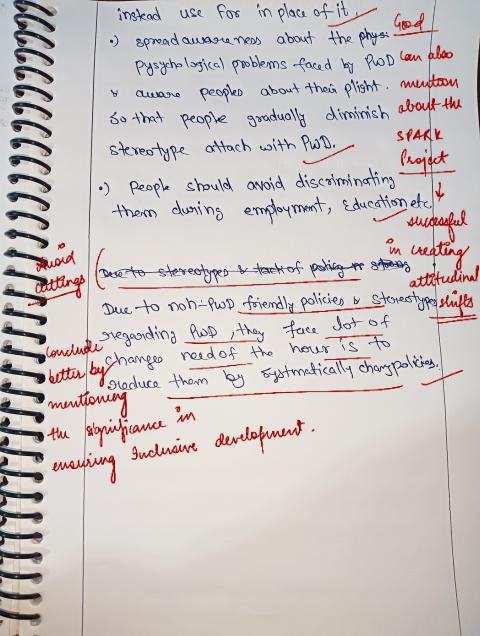 instead use for in place of it
Good
•) spread awareness about the physi
pysychological problems faced by PWD
can also
& aware peoples about their plight.
mention
so that people gradually diminish
about the
stereotype attach with PWD.
SPARK
Project
•) People should avoid discriminating
them during employment, Education etc.
successful
in creating
attitudinal
shifts
Avoid
cuttings
Due to stereotypes & lack of policy
Due to non-PWD friendly policies & stereotypes
regarding PWD, they face lot of
changes need of the hour is to
reduce them by systmatically chang policies.
Conclude
better by
mentioning
the significance in
ensuring Inclusive development.